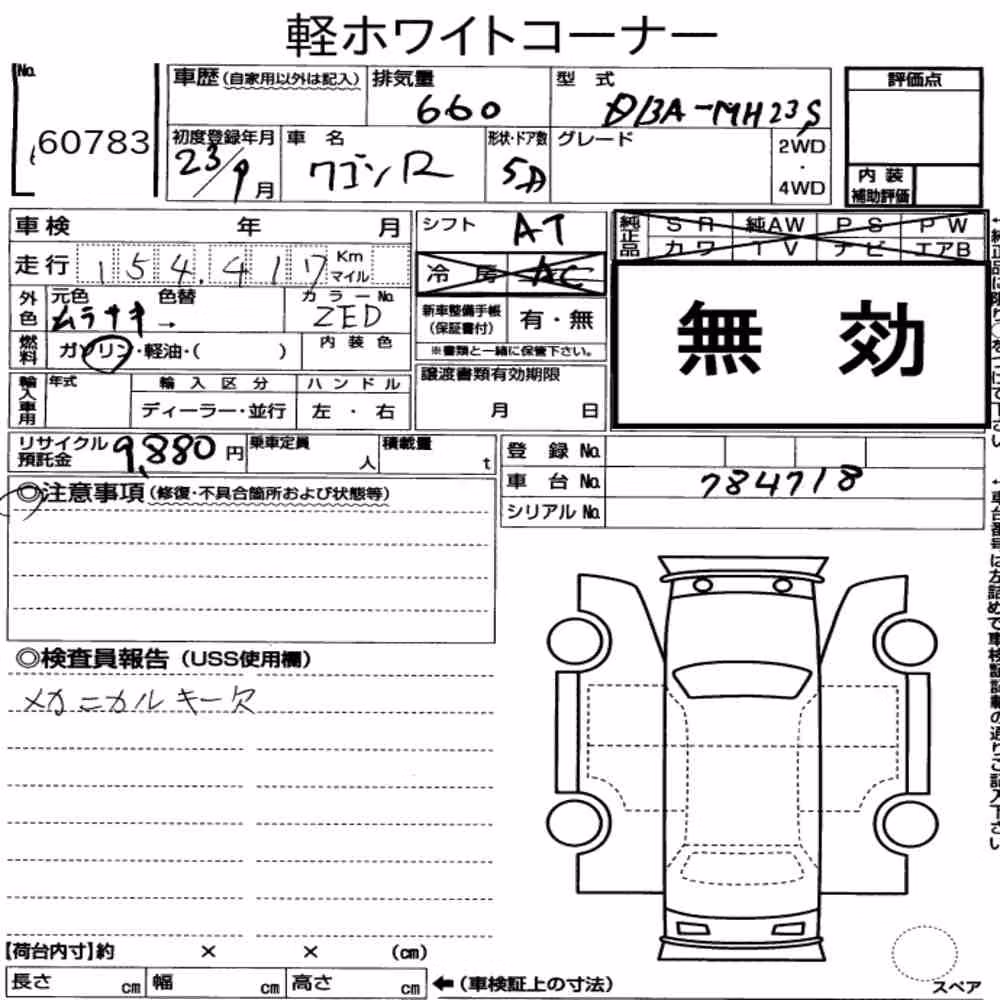 軽ホワイトコーナー
No.
60783
車歴(自家用以外は記入) 排気量 660 型式 DBA-MH23S
初度登録年月 23/9月 車名 ワゴンR 形状・ドア数 5D グレード 2WD・4WD
評価点
内装補助評価
車検 年 月
走行 154,417 Km マイル
外色 元色 ムラサキ → 色替 カラーNo. ZED
燃料 ガソリン・軽油・( ) 内装色
輸入車用 年式 輸入区分 ハンドル
ディーラー・並行 左・右
シフト AT
冷房 AC
新車整備手帳(保証書付) 有・無
※書類と一緒に保管下さい。
譲渡書類有効期限
月 日
純正品 SR 純AW PS PW
カワ TV ナビ エアB
無効
リサイクル預託金 9,880円 乗車定員 人 積載量 t
登録No.
車台No. 784718
シリアルNo.
◎注意事項(修復・不具合箇所および状態等)
◎検査員報告(USS使用欄)
メカニカルキー欠
【荷台内寸】約 × × (cm)
長さ cm 幅 cm 高さ cm ←(車検証上の寸法)
スペア
車台番号は左詰めで車検証記載の通りご記入下さい